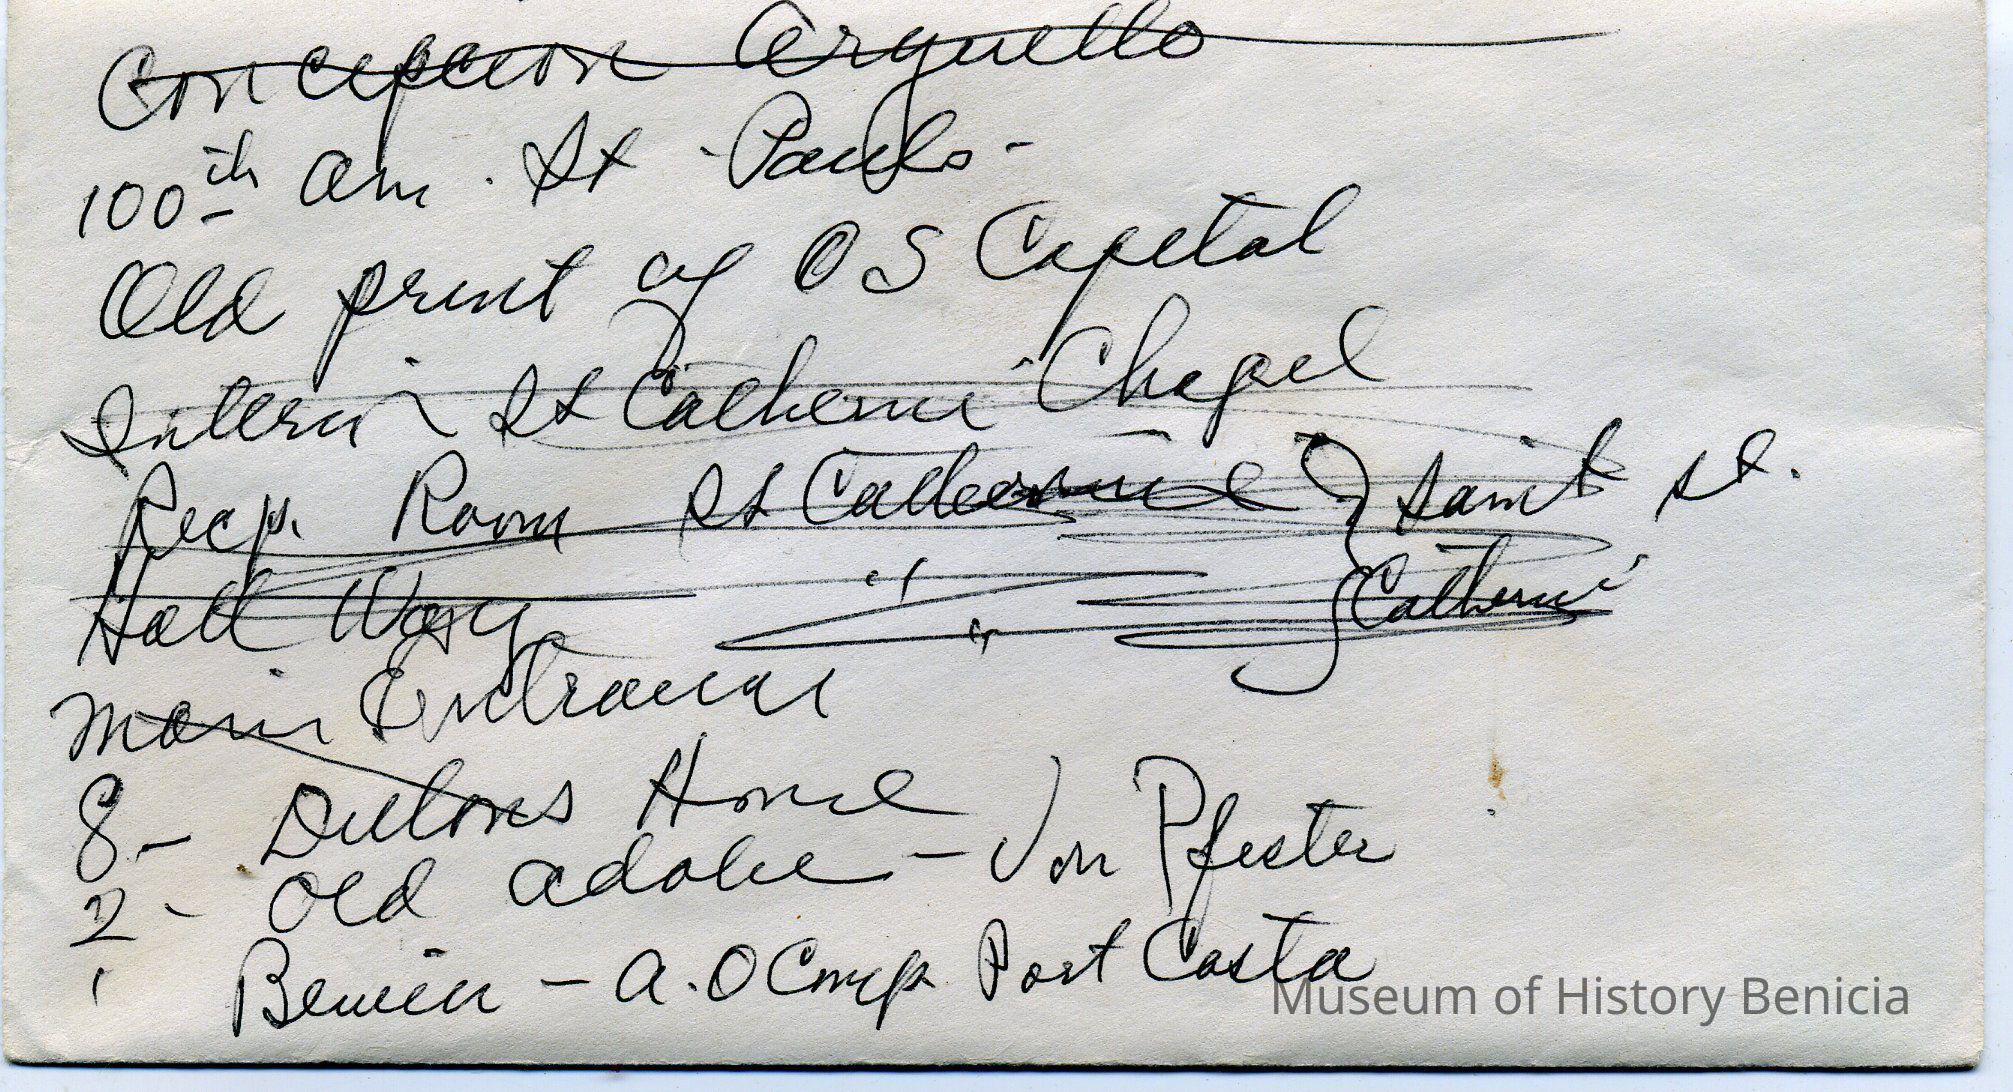 Concepcion Arguello
100th Ann. St. Pauls -
Old print of O S Capital
Interior St Catherine Chapel
Recp. Room St Catherine } Saint St.
Hall Way " " Catherine
Main Entrance
8 - Dillons Home
2 - Old adobe - Von Pfister
1 Benicia - A. O Comp Port Costa
Museum of History Benicia